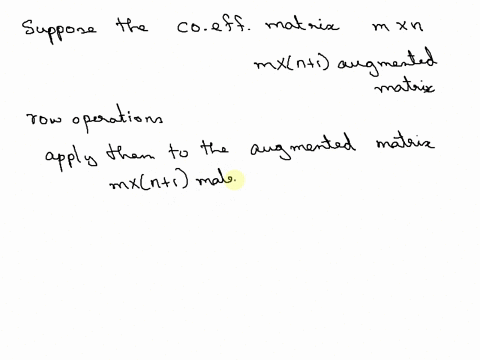 Suppose the co.eff. matrix m×n
m×(n+1) augmented
matrix
row operations
apply them to the augmented matrix
m×(n+1) mat